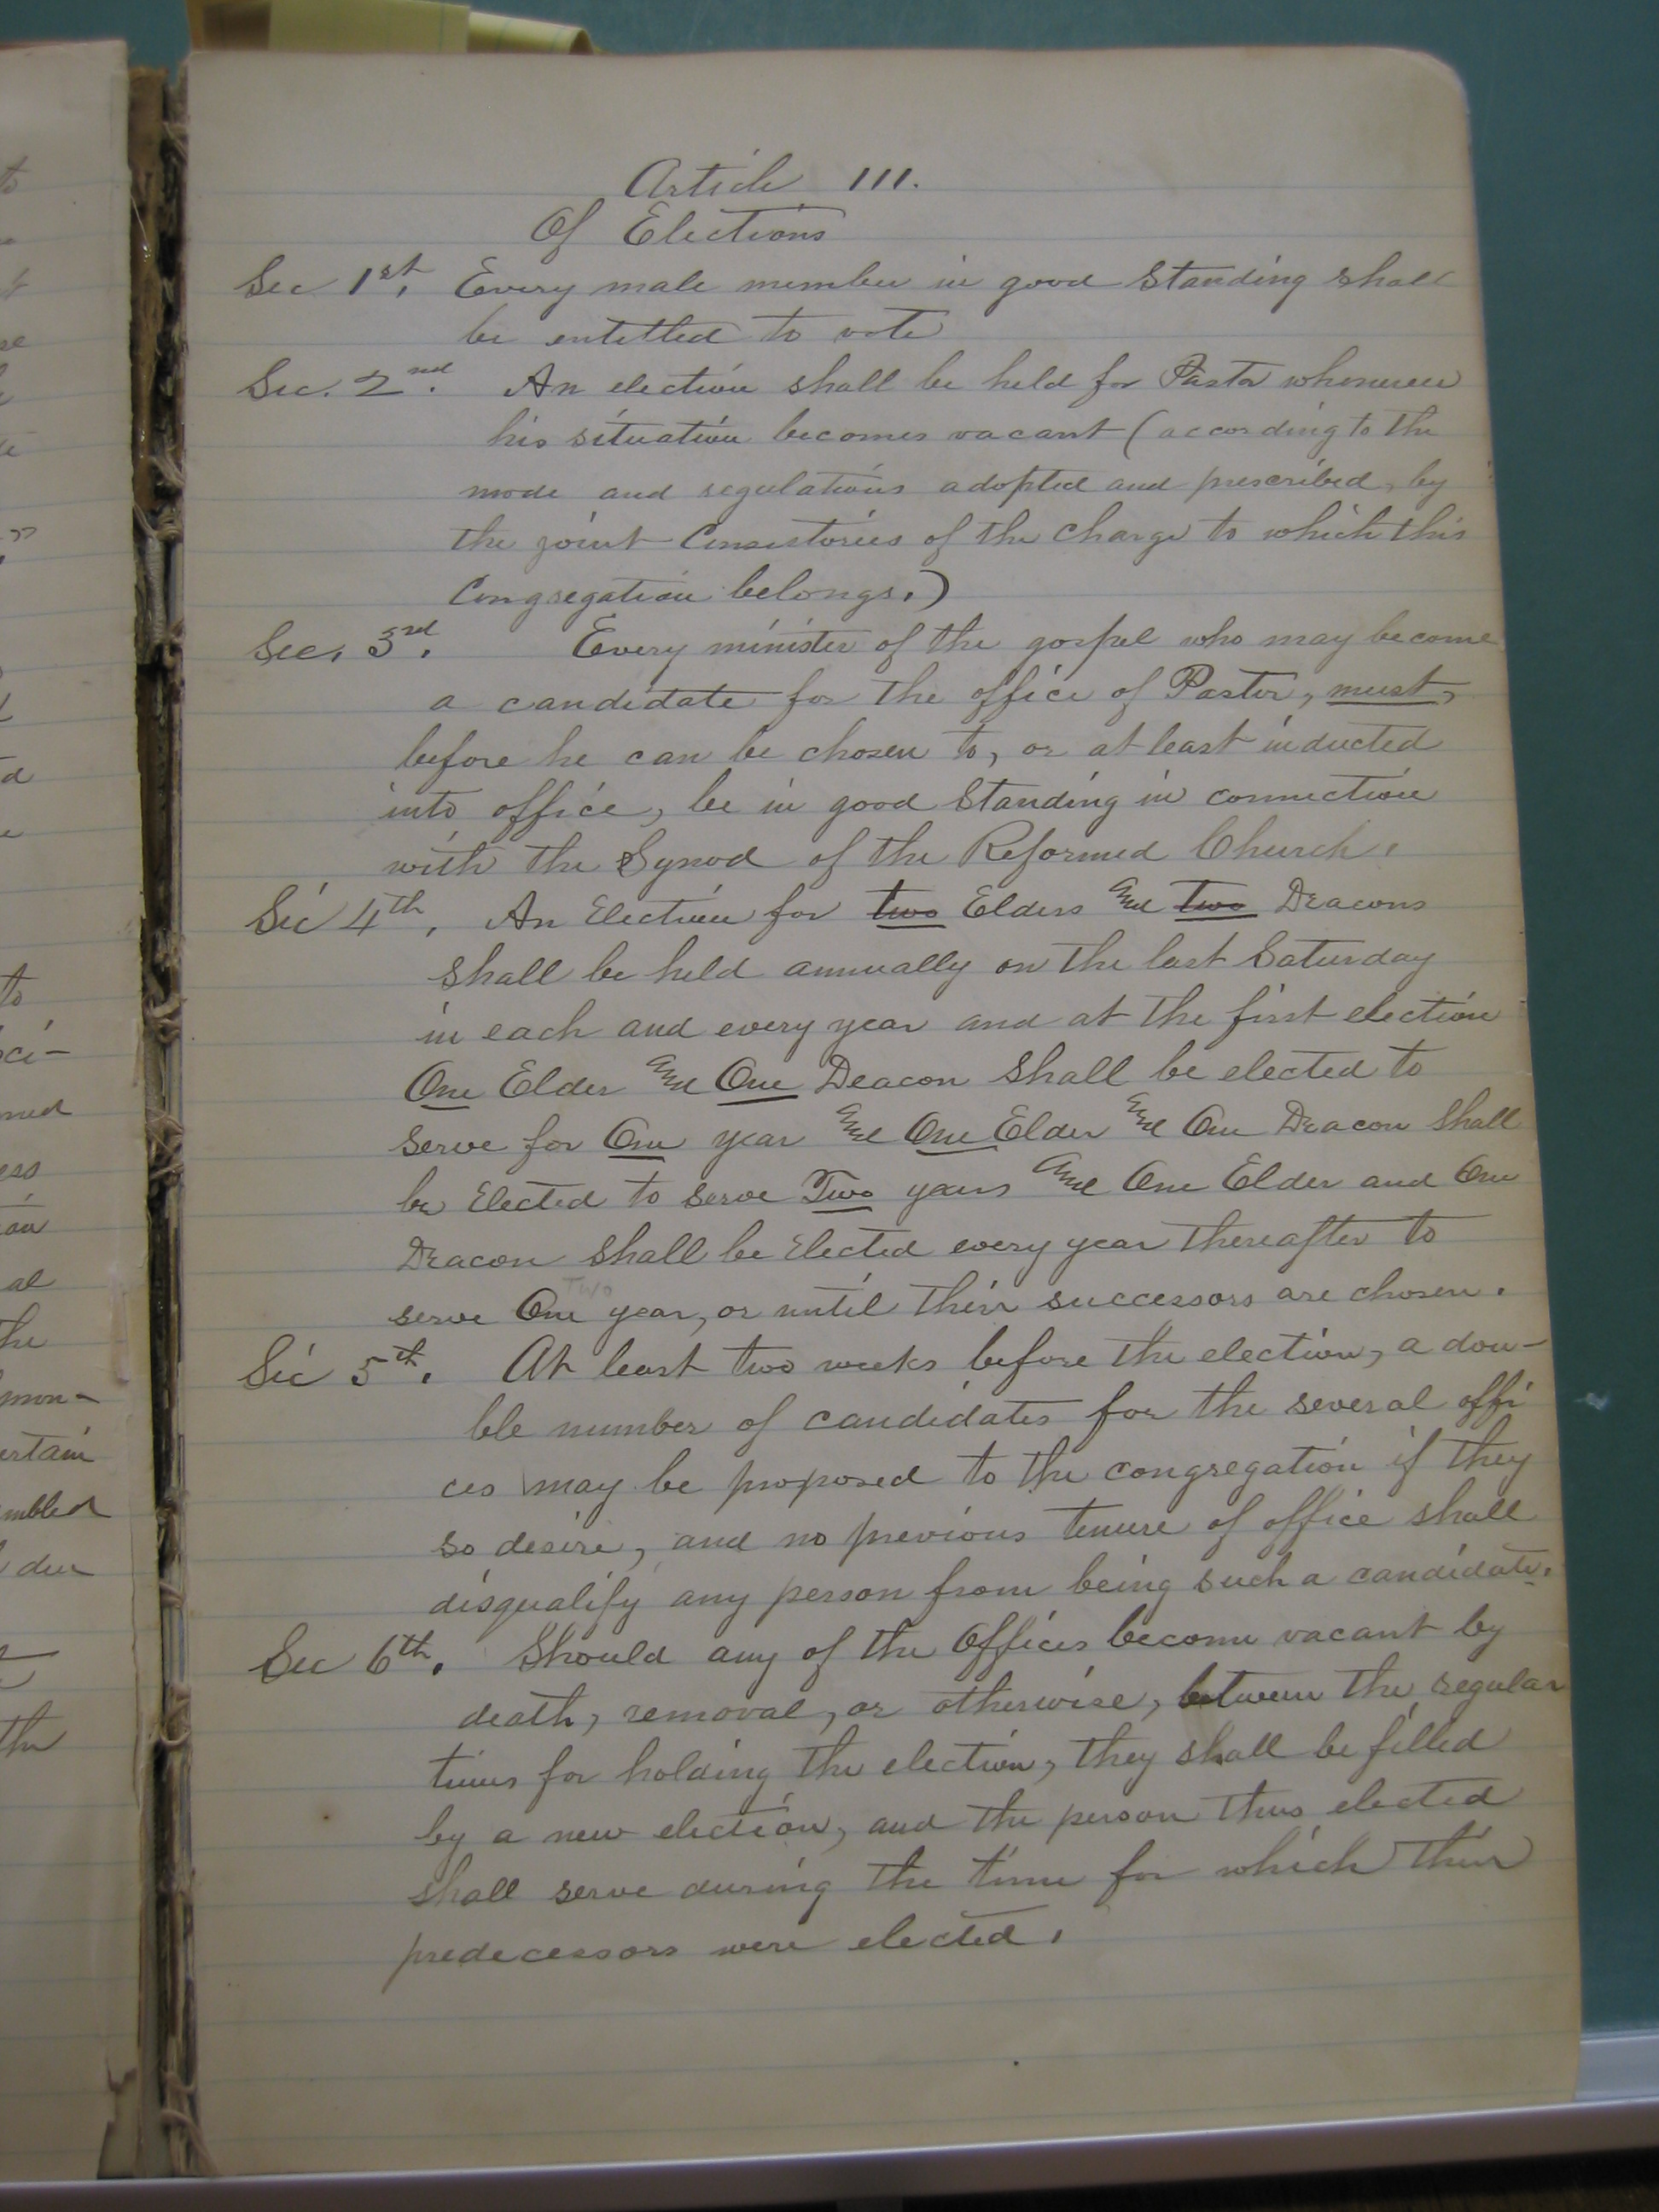 Article III.
Of Elections
Sec 1st. Every male member in good Standing shall
be entitled to vote
Sec. 2nd. An election shall be held for Pastor whenever
his situation becomes vacant (according to the
mode and regulations adopted and prescribed, by
the joint Consistories of the Charge to which this
Congregation belongs.)
Sec. 3rd. Every minister of the gospel who may become
a candidate for the office of Pastor, must,
before he can be chosen to, or at least inducted
into office, be in good Standing in connection
with the Synod of the Reformed Church.
Sec 4th. An Election for two Elders and two Deacons
shall be held annually on the last Saturday
in each and every year and at the first election
One Elder and One Deacon shall be elected to
serve for One year and One Elder and One Deacon Shall
be Elected to serve Two years and One Elder and One
Deacon shall be Elected every year thereafter to
Two
serve One year, or until their successors are chosen.
Sec 5th. At least two weeks before the election, a dou-
ble number of candidates for the several offi
ces may be proposed to the congregation if they
so desire, and no previous tenure of office shall
disqualify any person from being such a candidate.
Sec 6th. Should any of the Offices become vacant by
death, removal, or otherwise, between the regular
times for holding the election, they shall be filled
by a new election, and the person thus elected
shall serve during the time for which their
predecessors were elected.